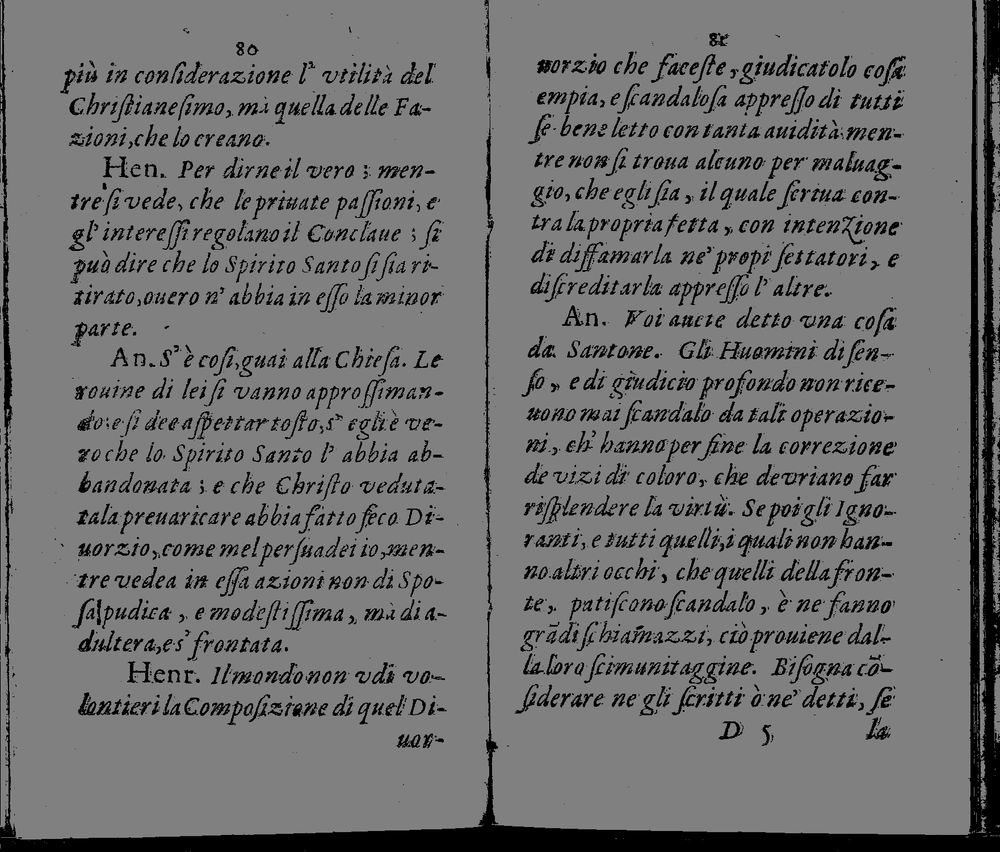 80
più in considerazione l' vtilità del
Christianesimo, mà quella delle Fa-
zioni, che lo creano.
Hen. Per dirne il vero ; men-
tre si vede, che le priuate passioni, e
gl' interessi regolano il Conclaue ; si
può dire che lo Spirito Santo si sia ri-
tirato, ouero n' abbia in esso la minor
parte.
An. S' è così, guai alla Chiesa. Le
rouine di lei si vanno approssiman-
do: e si dee aspettar tosto, s' egli è ve-
ro che lo Spirito Santo l' abbia ab-
bandonata ; e che Christo veduta-
tala preuaricare abbia fatto seco Di-
uorzio, come mel persuadei io, men-
tre vedea in essa azioni non di Spo-
sa pudica, e modestissima, mà di a-
dultera, e s' frontata.
Henr. Il mondo non vdì vo-
lontieri la Composizione di quel Di-
uor-
81
uorzio che faceste, giudicatolo cosa
empia, e scandalosa appresso di tutti
se bene letto con tanta auidità men-
tre non si troua alcuno per maluag-
gio, che egli sia, il quale scriua con-
tra la propria setta, con intenzione
di diffamarla ne' propi settatori, e
discreditarla appresso l' altre.
An. Voi auete detto vna cosa
da Santone. Gli Huomini di sen-
so, e di giudicio profondo non rice-
uono mai scandalo da tali operazio-
ni, ch' hanno per fine la correzione
de vizi di coloro, che devriano far
risplendere la virtù. Se poi gli Igno-
ranti, e tutti quelli, i quali non han-
no altri occhi, che quelli della fron-
te, patiscono scandalo, è ne fanno
grādi schiamazzi, ciò prouiene dal-
la loro scimunitaggine. Bisogna cō-
siderare ne gli scritti ò ne' detti, se
D 5 la